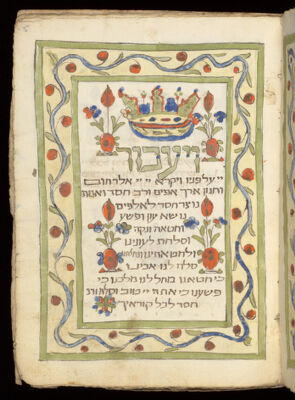 ויעבור
יי על פניו ויקרא יי יי אל רחום
וחנון ארך אפים ורב חסד ואמת
נוצר חסד לאלפים
נושא עון ופשע
וחטאה ונקה
וסלחת לעונינו
ולחטאתינו ונחלתנו
סלח לנו אבינו
כי חטאנו מחל לנו מלכנו כי
פשענו כי אתה יי טוב וסלח ורב
חסד לכל קוראיך